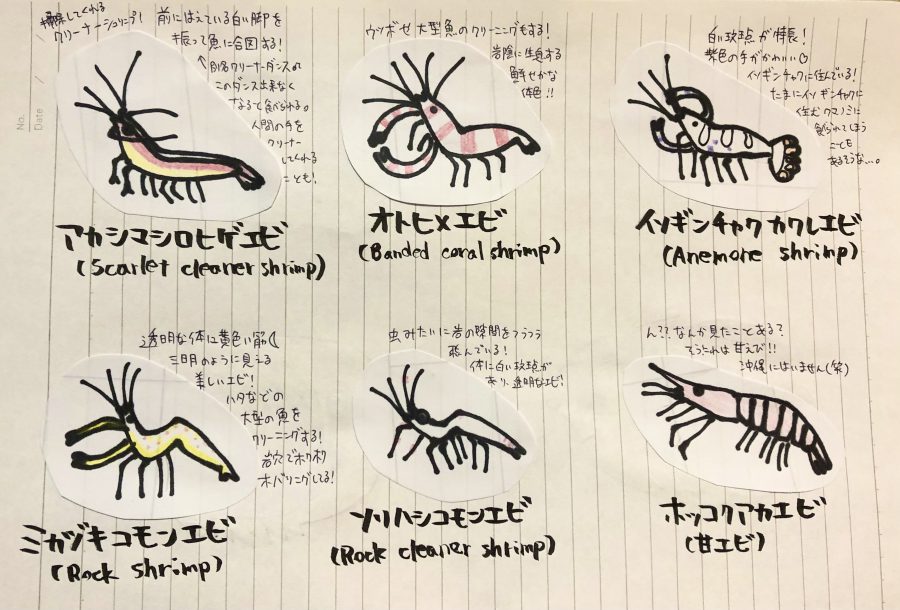 掃除してくれる
クリーナーシュリンプ!
前にはえている白い脚を
振って魚に合図する!
↑別名クリーナーダンス♪
このダンス出来なく
なると食べられる。
人間の手を
クリーナー
してくれる
ことも!
アカシマシロヒゲエビ
(Scarlet cleaner shrimp)
ウツボや大型魚のクリーニングもする!
岩陰に生息する
鮮やかな
体色!!
オトヒメエビ
(Banded coral shrimp)
白い斑点が特長!
紫色の手がかわいい♡
イソギンチャクに住んでいる!
たまにイソギンチャクに
住むクマノミに
食べられてしまう
ことも
あるそうな…。
イソギンチャクカクレエビ
(Anemone shrimp)
透明な体に黄色い筋☾
三日月のように見える
美しいエビ!
ハタなどの
大型の魚を
クリーニングする!
岩穴でホクホク
ホバリングしてる!
ミカヅキコモンエビ
(Rock shrimp)
虫みたいに岩の隙間をフラフラ
飛んでいる!
体に白い斑点が
あり、透明なエビ!
ソリハシコモンエビ
(Rock cleaner shrimp)
ん??なんか見たことある?
そうこれは甘えび!!
沖縄にはいません(笑)
ホッコクアカエビ
(甘エビ)
No.
Date